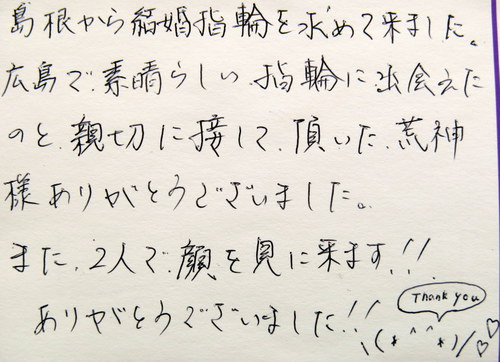 島根から結婚指輪を求めて来ました。
広島で素晴らしい指輪に出会えた
のと、親切に接して、頂いた、荒神
様ありがとうございました。
また、2人で、顔を見に来ます!!
ありがとうございました!!
Thank you
\(*^^*)/♡♡